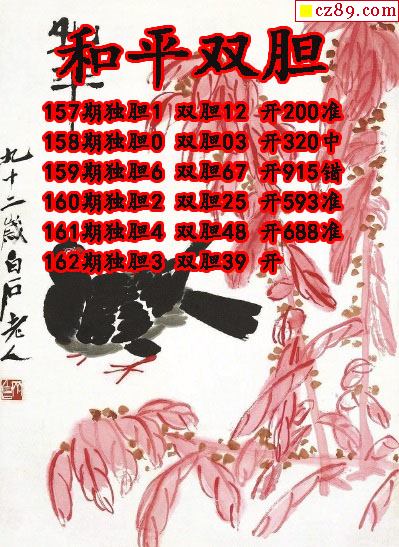 cz89.com
和平双胆
157期独胆1 双胆12 开200准
158期独胆0 双胆03 开320中
159期独胆6 双胆67 开915错
160期独胆2 双胆25 开593准
161期独胆4 双胆48 开688准
162期独胆3 双胆39 开
九十二岁白石老人